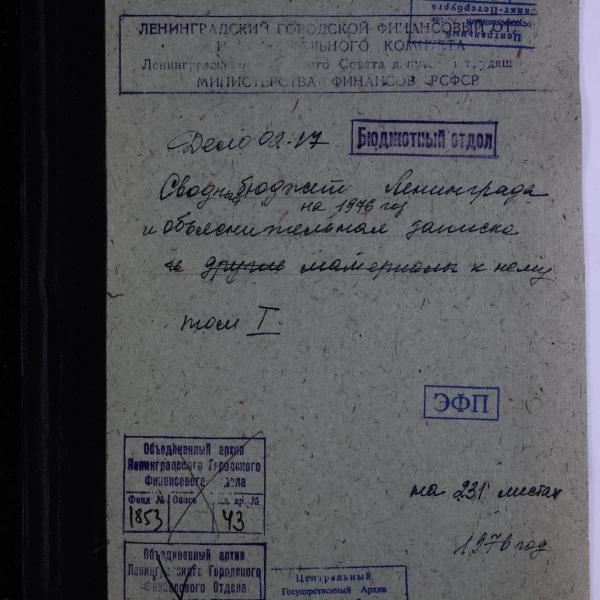 Центральный
Санкт-Петербурга
ЛЕНИНГРАДСКИЙ ГОРОДСКОЙ ФИНАНСОВЫЙ ОТ
КОМИТЕТА
МИНИСТЕРСТВА ФИНАНСОВ РСФСР
Дело 02-17 Бюджетный отдел
Сводный бюджет Ленинграда
на 1976 год
и объяснительная записка
и другие материалы к нему
том I
ЭФП
Объединенный архив
Ленинградского Городского
Финансового отдела
Фонд № Опись ед. хр. №
1853 43
на 231 листах
1976 год
Объединенный архив
Ленинградского Городского
Финансового Отдела
Центральный
Государственный Архив